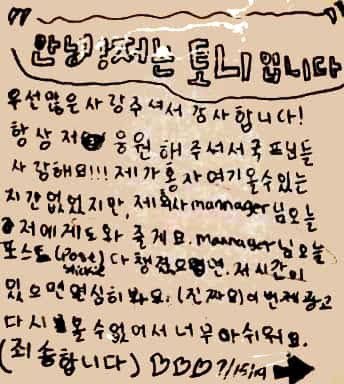 안녕! 저는 토니 입니다
우선 많은 사랑주셔서 감사합니다!
항상 저 응원해주셔서 국 프님들
사랑해요!!! 제가 혼자 여기 올수있는
지간 없었지만, 제 회사 mannager님 오늘
저에 제도와 줄게요. mannager님 오늘
포스트 (Post) 다 챙겼으면. 저 시간이
있으면 열심히 봐요. (진짜요) 이 번제 광고
다시 올 수 없어서 너무 아쉬워요.
(죄송합니다) ♡♡♡ 7/15/19